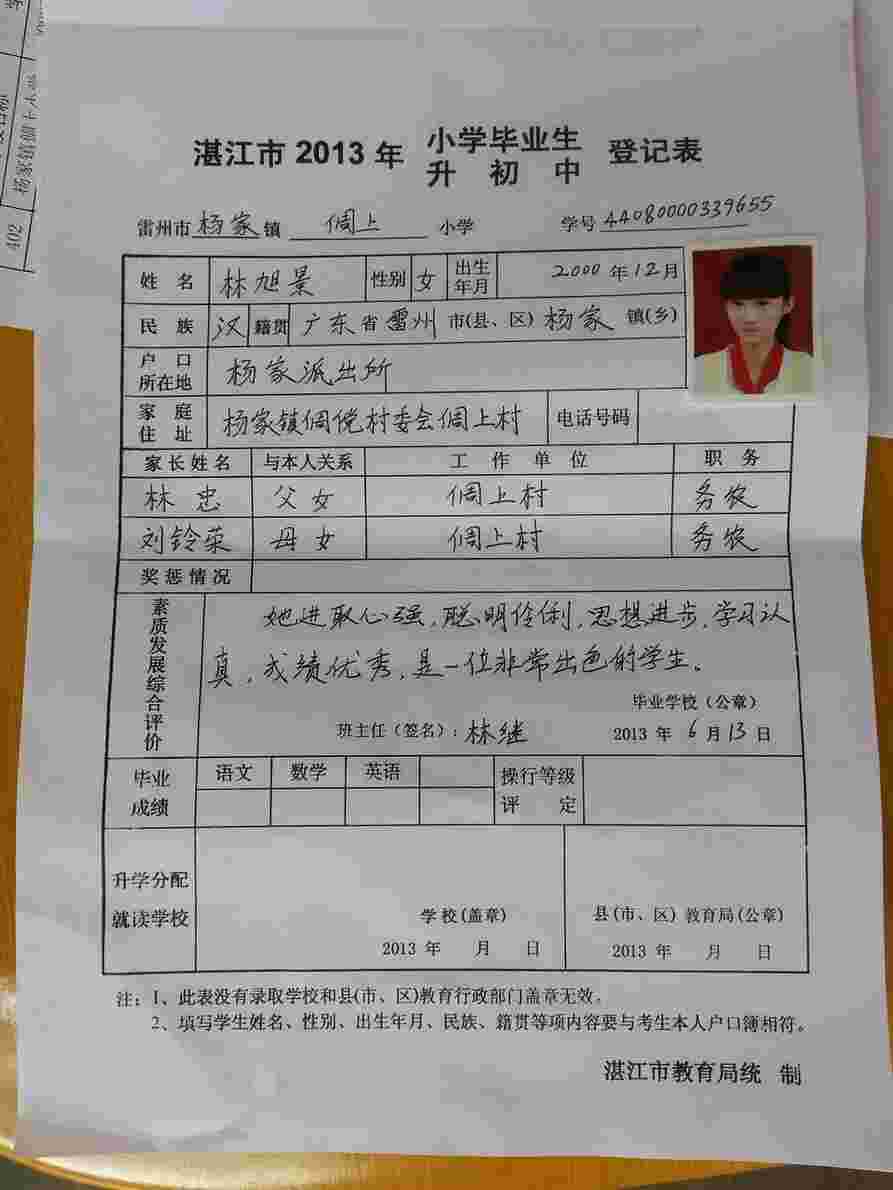 402 杨家镇
湛江市2013年 小学毕业生 登记表
升初中
雷州市杨家镇 倜上 小学 学号 44080000339655
姓名 林旭景 性别 女 出生年月 2000年12月
民族 汉 籍贯 广东省雷州市(县、区)杨家镇(乡)
户口所在地 杨家派出所
家庭住址 杨家镇倜傥村委会倜上村 电话号码
家长姓名 与本人关系 工作单位 职务
林忠 父女 倜上村 务农
刘铃荣 母女 倜上村 务农
奖惩情况
素质发展综合评价
她进取心强,聪明伶俐,思想进步,学习认
真,成绩优秀,是一位非常出色的学生。
毕业学校(公章)
班主任(签名):林继 2013年6月13日
毕业成绩 语文 数学 英语 操行等级评定
升学分配
就读学校
学校(盖章) 县(市、区)教育局(公章)
2013年 月 日 2013年 月 日
注:1、此表没有录取学校和县(市、区)教育行政部门盖章无效。
2、填写学生姓名、性别、出生年月、民族、籍贯等项内容要与考生本人户口簿相符。
湛江市教育局统 制